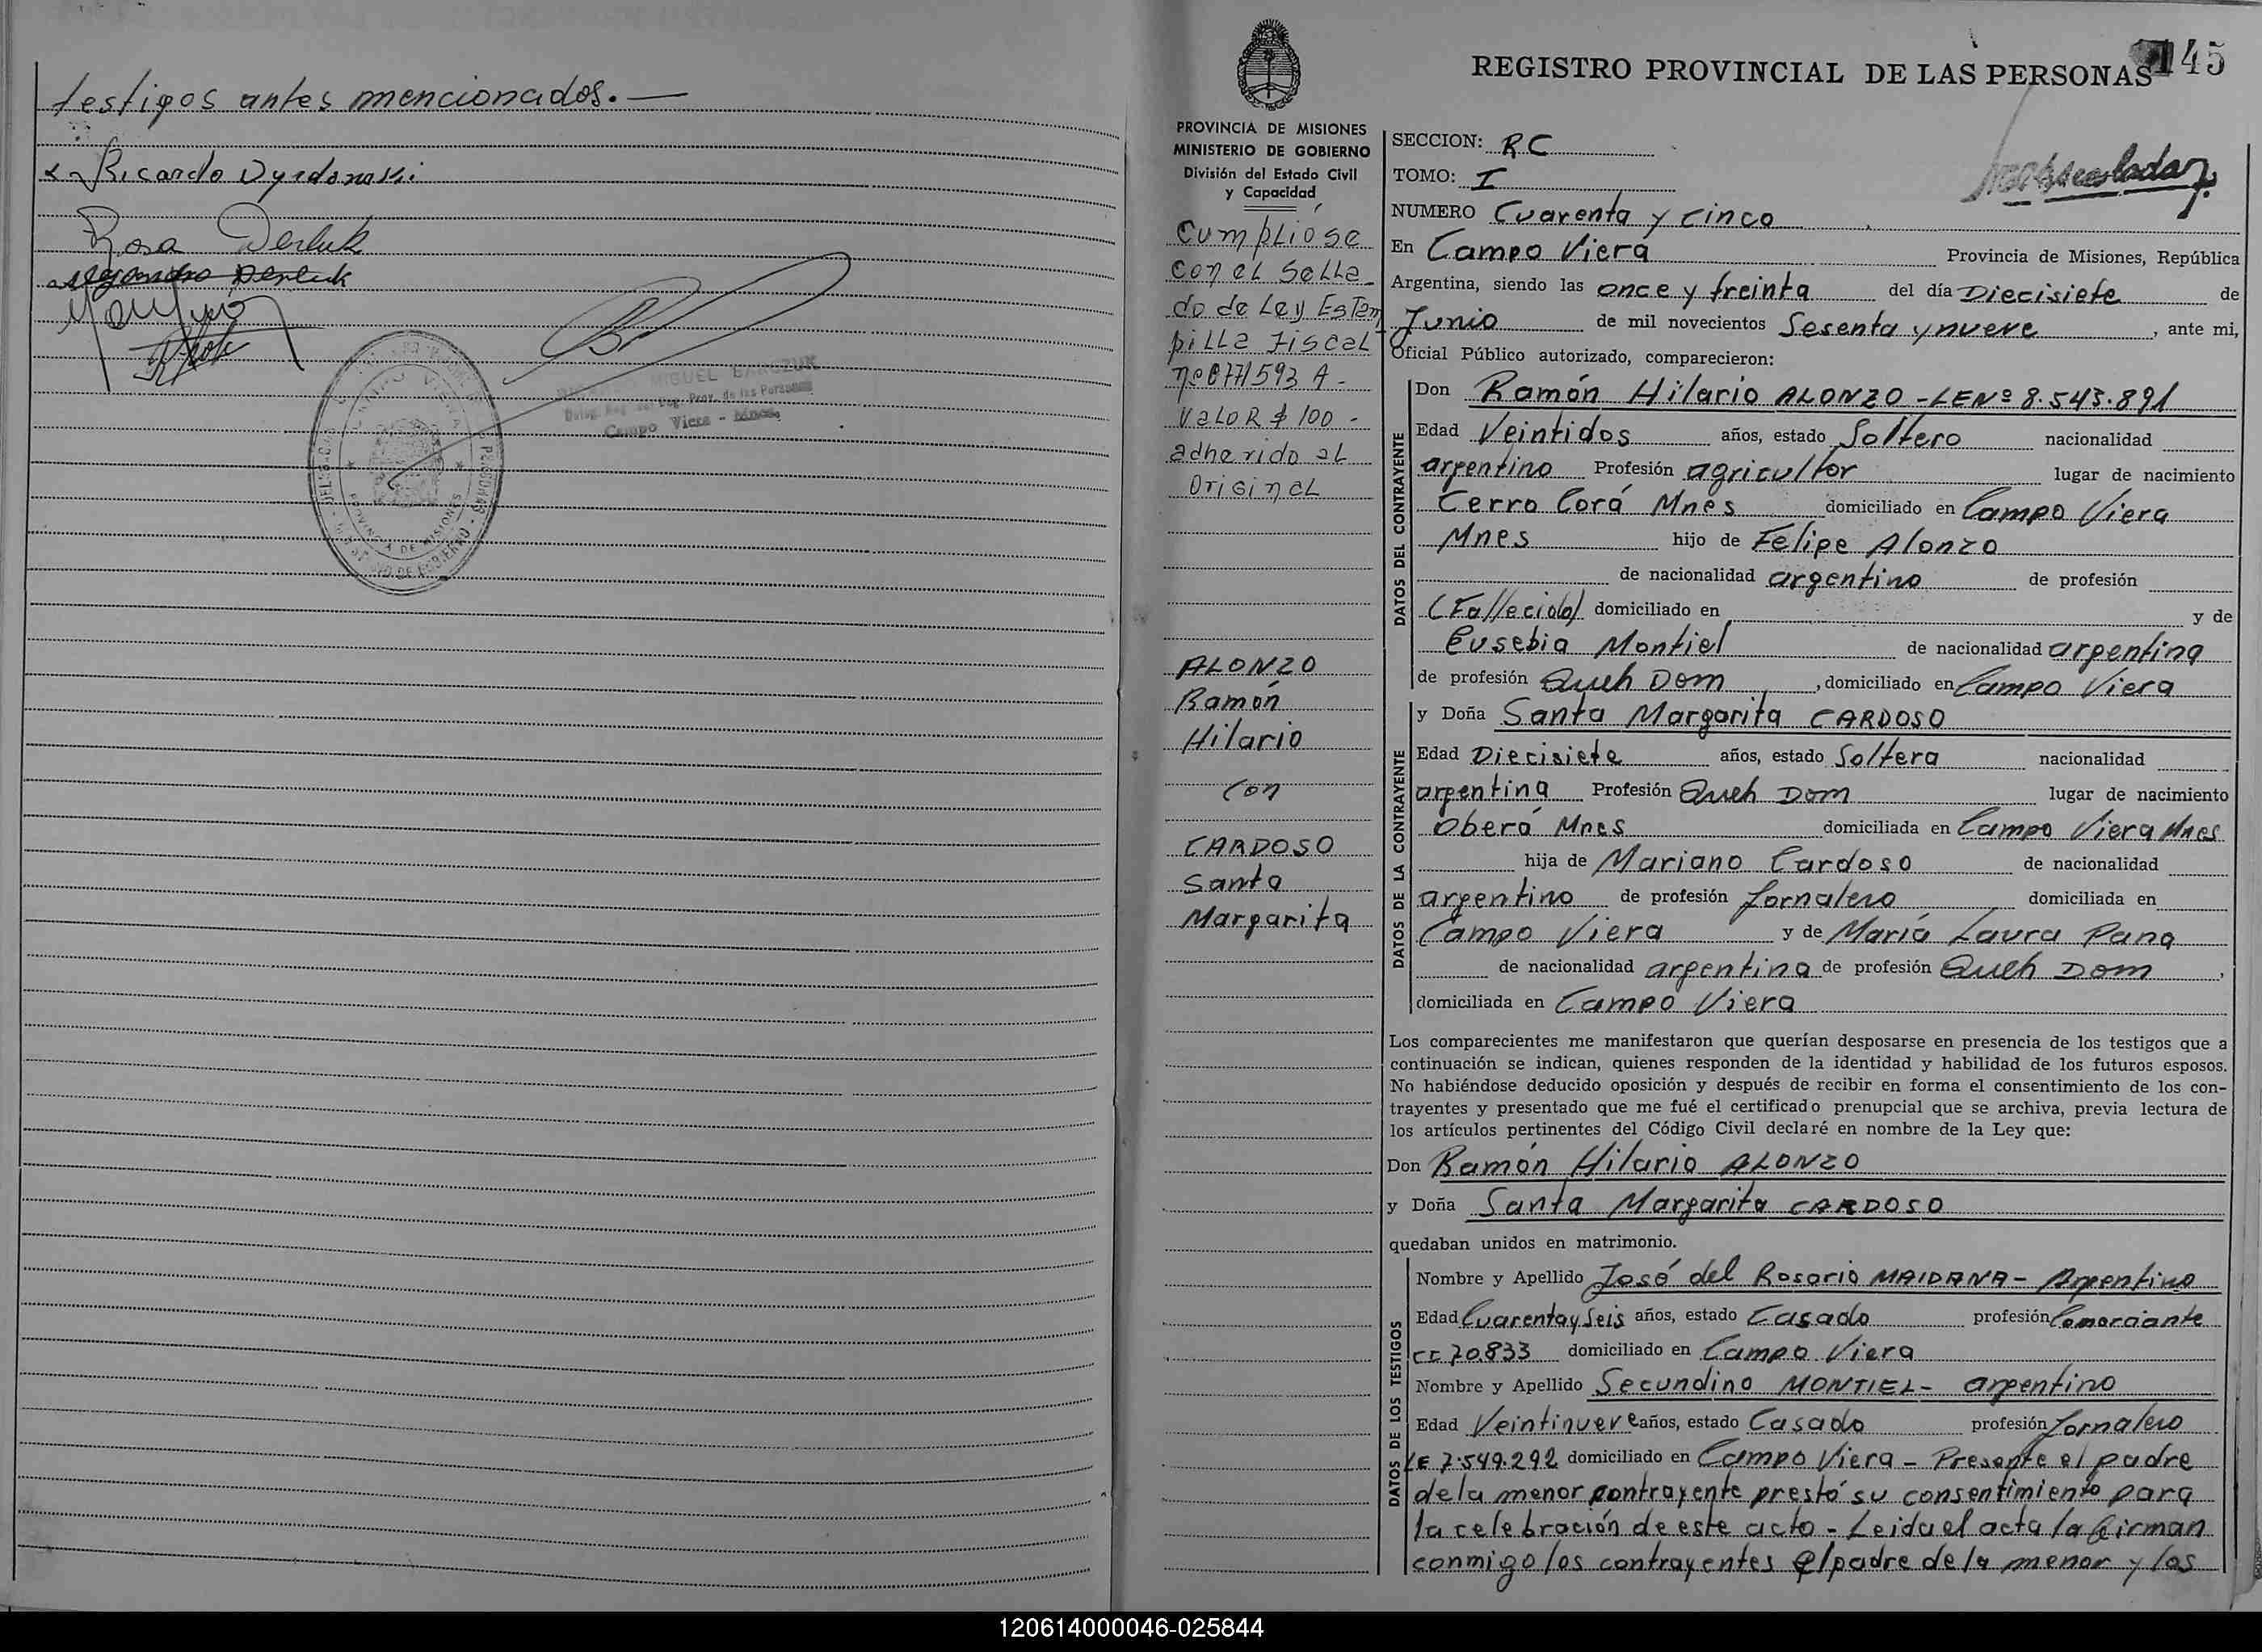 testigos antes mencionados.—
Ricardo Dyrdonski
Rosa Derluk
Derluk
MIGUEL
Campo Viera - 
PROVINCIA DE MISIONES
145
REGISTRO PROVINCIAL DE LAS PERSONAS
PROVINCIA DE MISIONES
MINISTERIO DE GOBIERNO
División del Estado Civil
y Capacidad
Cumpliose
con el Sella_
do de Ley Estam
pilla Fiscal
593 A -
Valor $ 100 -
adherido al
Original
ALONZO
Ramón
Hilario
con
CARDOSO
Santa
Margarita
SECCION: RC
TOMO: I
NUMERO Cuarenta y cinco
En Campo Viera Provincia de Misiones, República
Argentina, siendo las once y treinta del día Diecisiete de
Junio de mil novecientos Sesenta y nueve, ante mi,
Oficial Público autorizado, comparecieron:
DATOS DEL CONTRAYENTE
Don Ramón Hilario ALONZO - LE Nº 8.543.891
Edad Veintidos años, estado Soltero nacionalidad
argentino Profesión agricultor lugar de nacimiento
Cerro Corá Mnes domiciliado en Campo Viera
Mnes hijo de Felipe Alonzo
de nacionalidad argentino de profesión
(Fallecido) domiciliado en y de
Eusebia Montiel de nacionalidad argentina
de profesión Queh Dom, domiciliado en Campo Viera
DATOS DE LA CONTRAYENTE
y Doña Santa Margarita CARDOSO
Edad Diecisiete años, estado Soltera nacionalidad
argentina Profesión Queh Dom lugar de nacimiento
Oberá Mnes domiciliada en Campo Viera Mnes
hija de Mariano Cardoso de nacionalidad
argentino de profesión Jornalero domiciliada en
Campo Viera y de María Laura Pana
de nacionalidad argentina de profesión Queh Dom,
domiciliada en Campo Viera
Los comparecientes me manifestaron que querían desposarse en presencia de los testigos que a
continuación se indican, quienes responden de la identidad y habilidad de los futuros esposos.
No habiéndose deducido oposición y después de recibir en forma el consentimiento de los con-
trayentes y presentado que me fué el certificado prenupcial que se archiva, previa lectura de
los artículos pertinentes del Código Civil declaré en nombre de la Ley que:
Don Ramón Hilario ALONZO
y Doña Santa Margarita CARDOSO
quedaban unidos en matrimonio.
DATOS DE LOS TESTIGOS
Nombre y Apellido José del Rosario MAIDANA - Argentino
Edad Cuarenta y Seis años, estado Casado profesión Comerciante
CI 70.833 domiciliado en Campo Viera
Nombre y Apellido Secundino MONTIEL - argentino
Edad Veintinueve años, estado Casado profesión Jornalero
LE 7.549.292 domiciliado en Campo Viera - Presente el padre
de la menor contrayente prestó su consentimiento para
la celebración de este acto - Leida el acta la firman
conmigo los contrayentes el padre de la menor y los
120614000046-025844